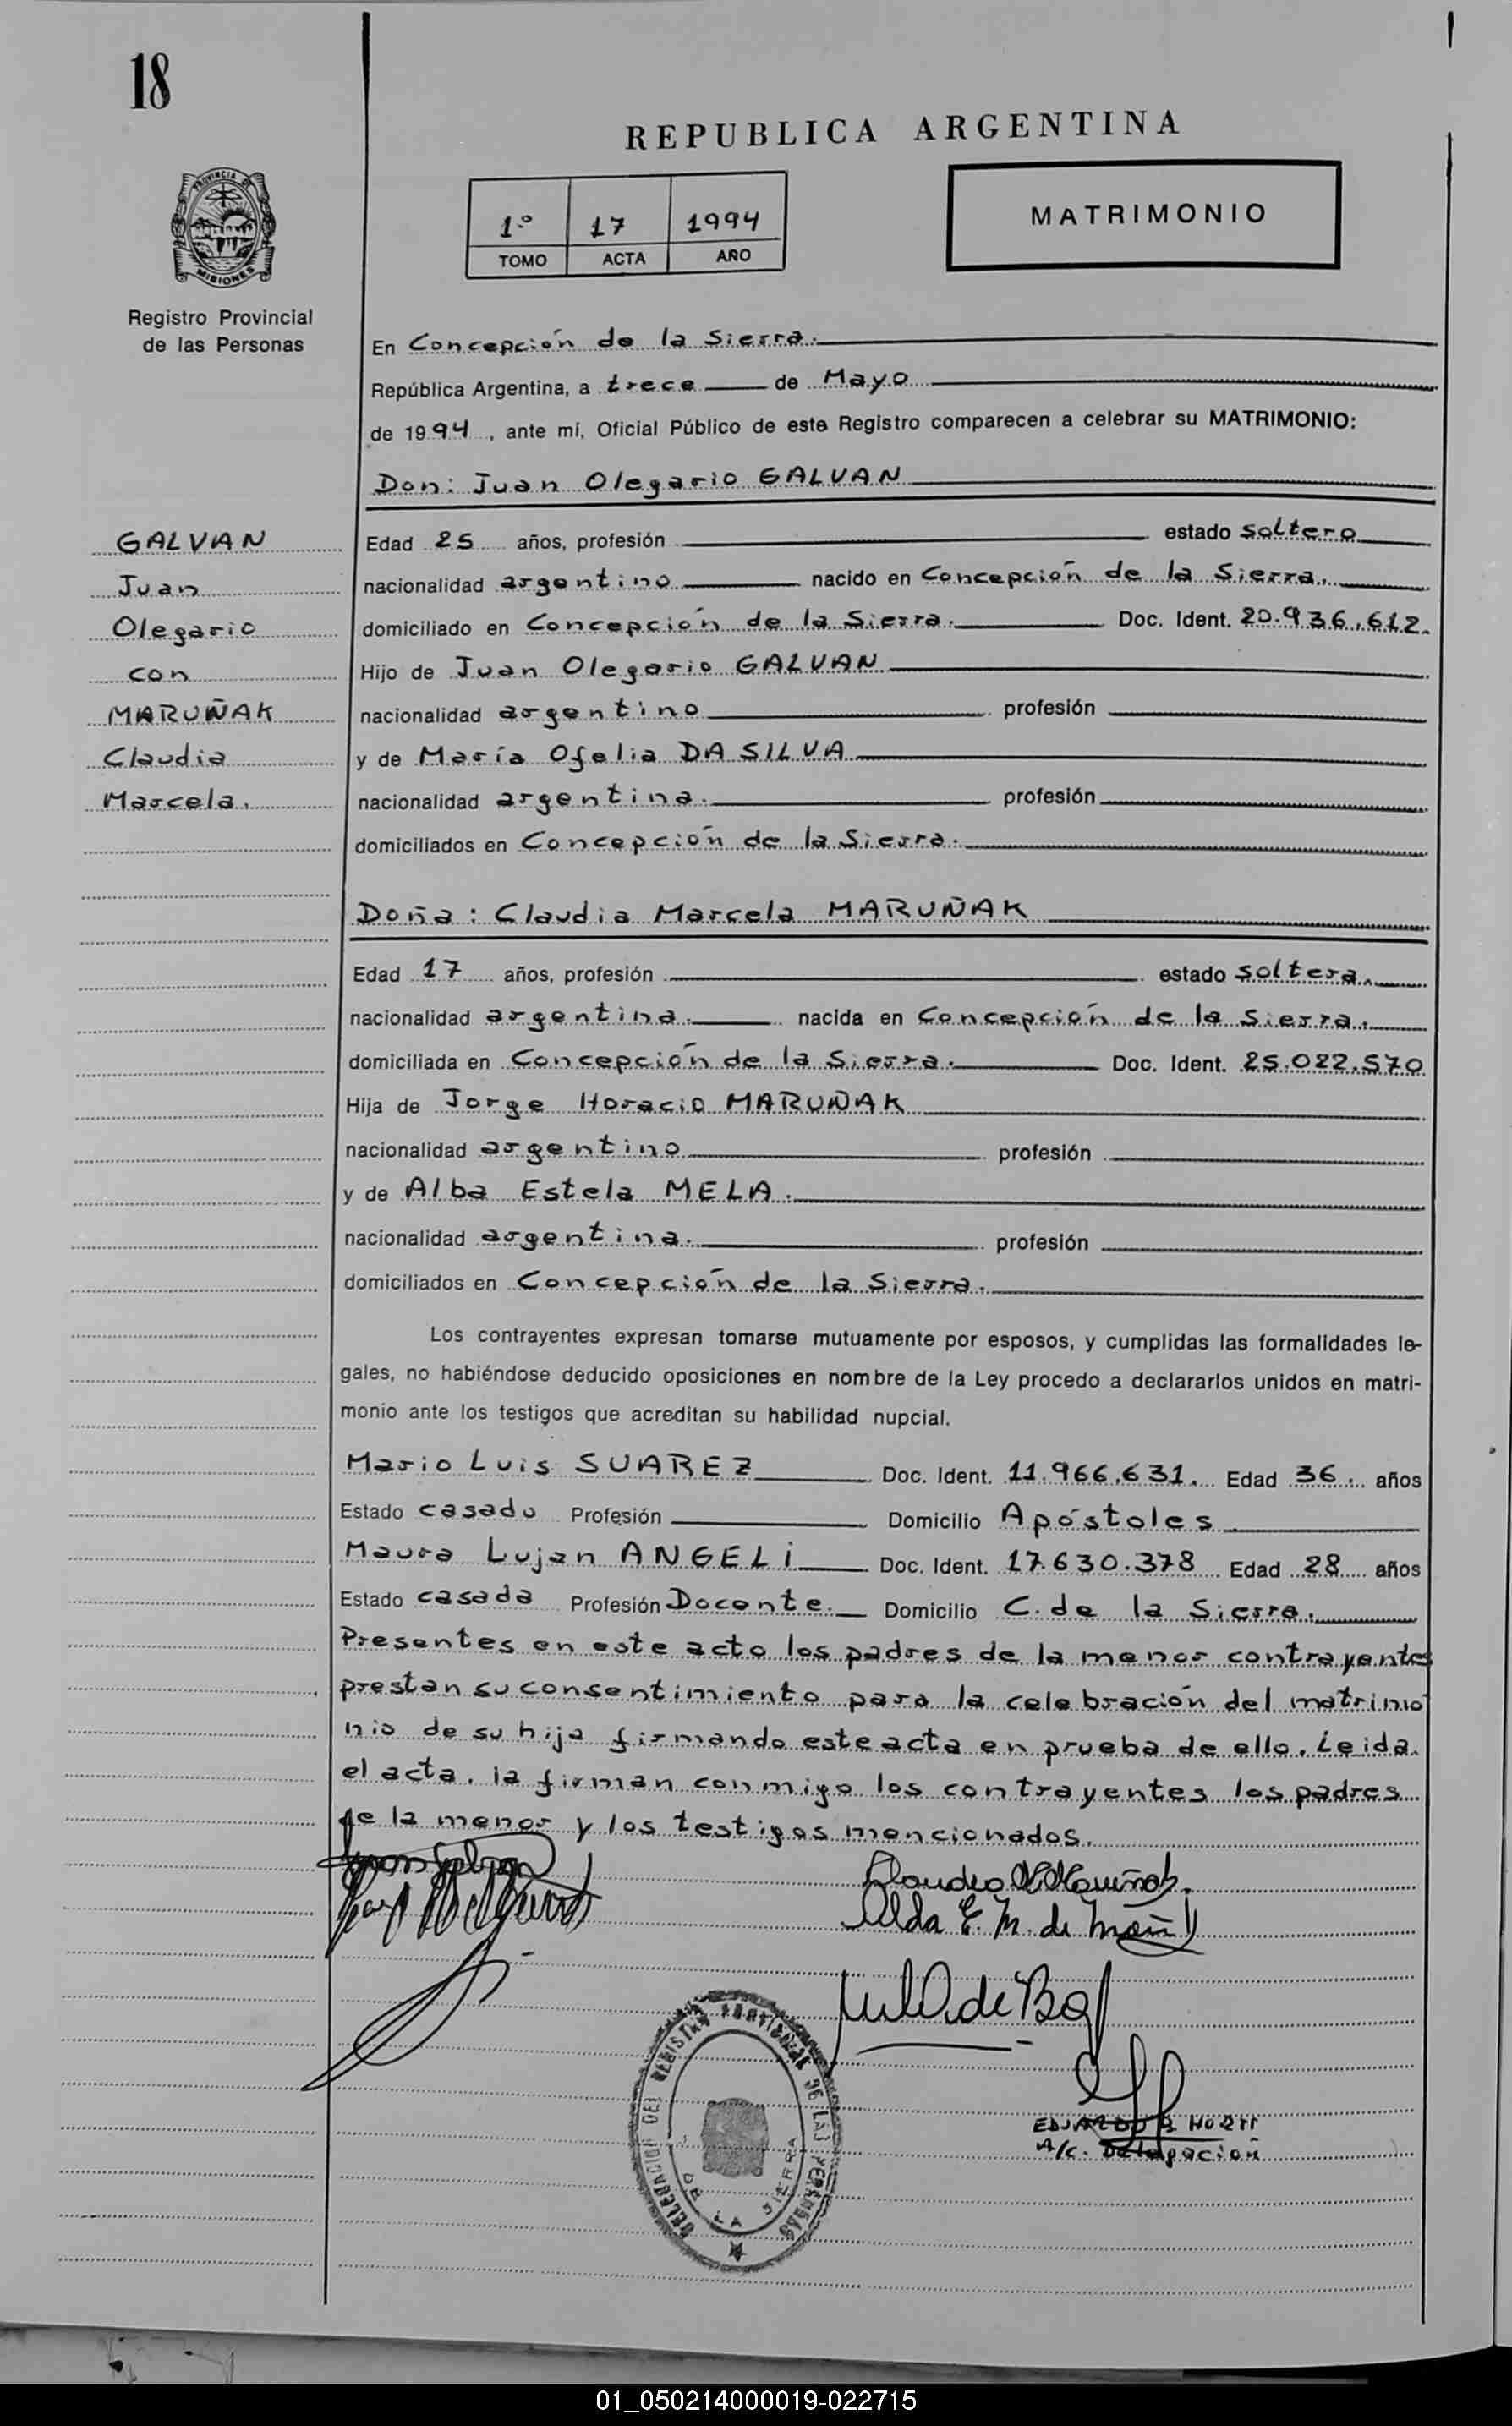 18
REPUBLICA ARGENTINA
PROVINCIA DE
MISIONES
1º 17 1994
TOMO ACTA AÑO
MATRIMONIO
Registro Provincial
de las Personas
En Concepción de la Sierra.
República Argentina, a trece de Mayo
de 1994, ante mí, Oficial Público de este Registro comparecen a celebrar su MATRIMONIO:
Don: Juan Olegario GALVAN
GALVAN
Juan
Olegario
con
MARUÑAK
Claudia
Marcela.
Edad 25 años, profesión estado soltero
nacionalidad argentino nacido en Concepción de la Sierra.
domiciliado en Concepción de la Sierra. Doc. Ident. 20.936.612.
Hijo de Juan Olegario GALVAN
nacionalidad argentino profesión
y de María Ofelia DA SILVA
nacionalidad argentina. profesión
domiciliados en Concepción de la Sierra.
Doña: Claudia Marcela MARUÑAK
Edad 17 años, profesión estado soltera.
nacionalidad argentina. nacida en Concepción de la Sierra.
domiciliada en Concepción de la Sierra. Doc. Ident. 25.022.570
Hija de Jorge Horacio MARUÑAK
nacionalidad argentino profesión
y de Alba Estela MELA.
nacionalidad argentina. profesión
domiciliados en Concepción de la Sierra.
Los contrayentes expresan tomarse mutuamente por esposos, y cumplidas las formalidades le-
gales, no habiéndose deducido oposiciones en nombre de la Ley procedo a declararlos unidos en matri-
monio ante los testigos que acreditan su habilidad nupcial.
Mario Luis SUAREZ Doc. Ident. 11.966.631. Edad 36. años
Estado casado Profesión Domicilio Apóstoles
Maura Lujan ANGELI Doc. Ident. 17.630.378 Edad 28 años
Estado casada Profesión Docente. Domicilio C. de la Sierra.
Presentes en este acto los padres de la menor contrayentes
prestan su consentimiento para la celebración del matrimo
nio de su hija firmando este acta en prueba de ello. Leida
el acta, la firman conmigo los contrayentes los padres
de la menor y los testigos mencionados.
DELEGACION DEL REGISTRO PROVINCIAL DE LAS PERSONAS
DE LA SIERRA
A/C. Delegación
01_050214000019-022715